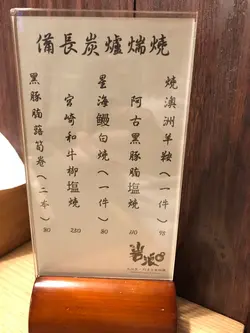 備長炭爐端燒
燒澳洲羊鞍(一件) 98
阿古黑豚腩塩燒 110
星海鰻白燒(一件) 80
宮崎和牛柳塩燒 220
黑豚腩蘆筍卷(二本) 80